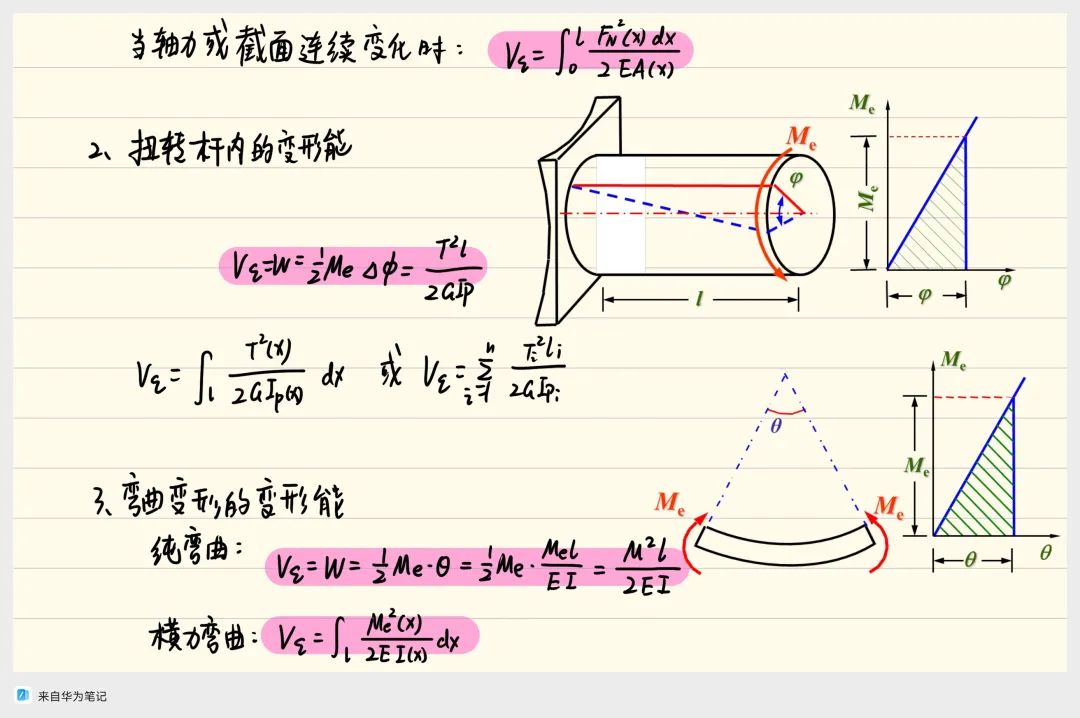 当轴力或截面连续变化时: Vε = ∫₀ˡ F_N²(x) dx / 2EA(x)
2、扭转杆内的变形能
Vε = W = ½ Me Δφ = T²l / 2GIp
Vε = ∫_l T²(x) / 2GIp(x) dx 或 Vε = Σ_{i=1}^{n} Ti²li / 2GIpi
Me
φ
l
Me
Me
φ
φ
3、弯曲变形的变形能
纯弯曲: Vε = W = ½ Me·θ = ½ Me· Mel / EI = M²l / 2EI
横力弯曲: Vε = ∫_l Me²(x) / 2EI(x) dx
θ
Me
Me
Me
Me
θ
θ
来自华为笔记